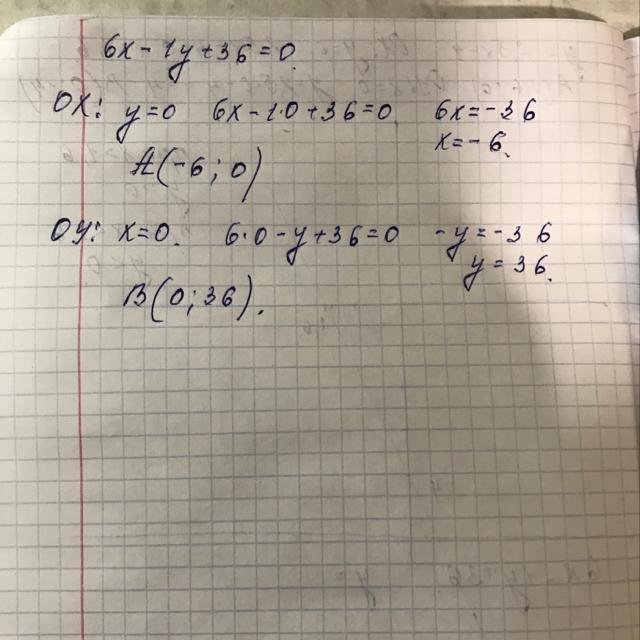 6x - 1y + 36 = 0
OX: y=0 6x - 1·0 + 36 = 0 6x = -36
x = -6.
A(-6; 0)
OY: x=0. 6·0 - y + 36 = 0 -y = -36
y = 36.
B(0; 36).